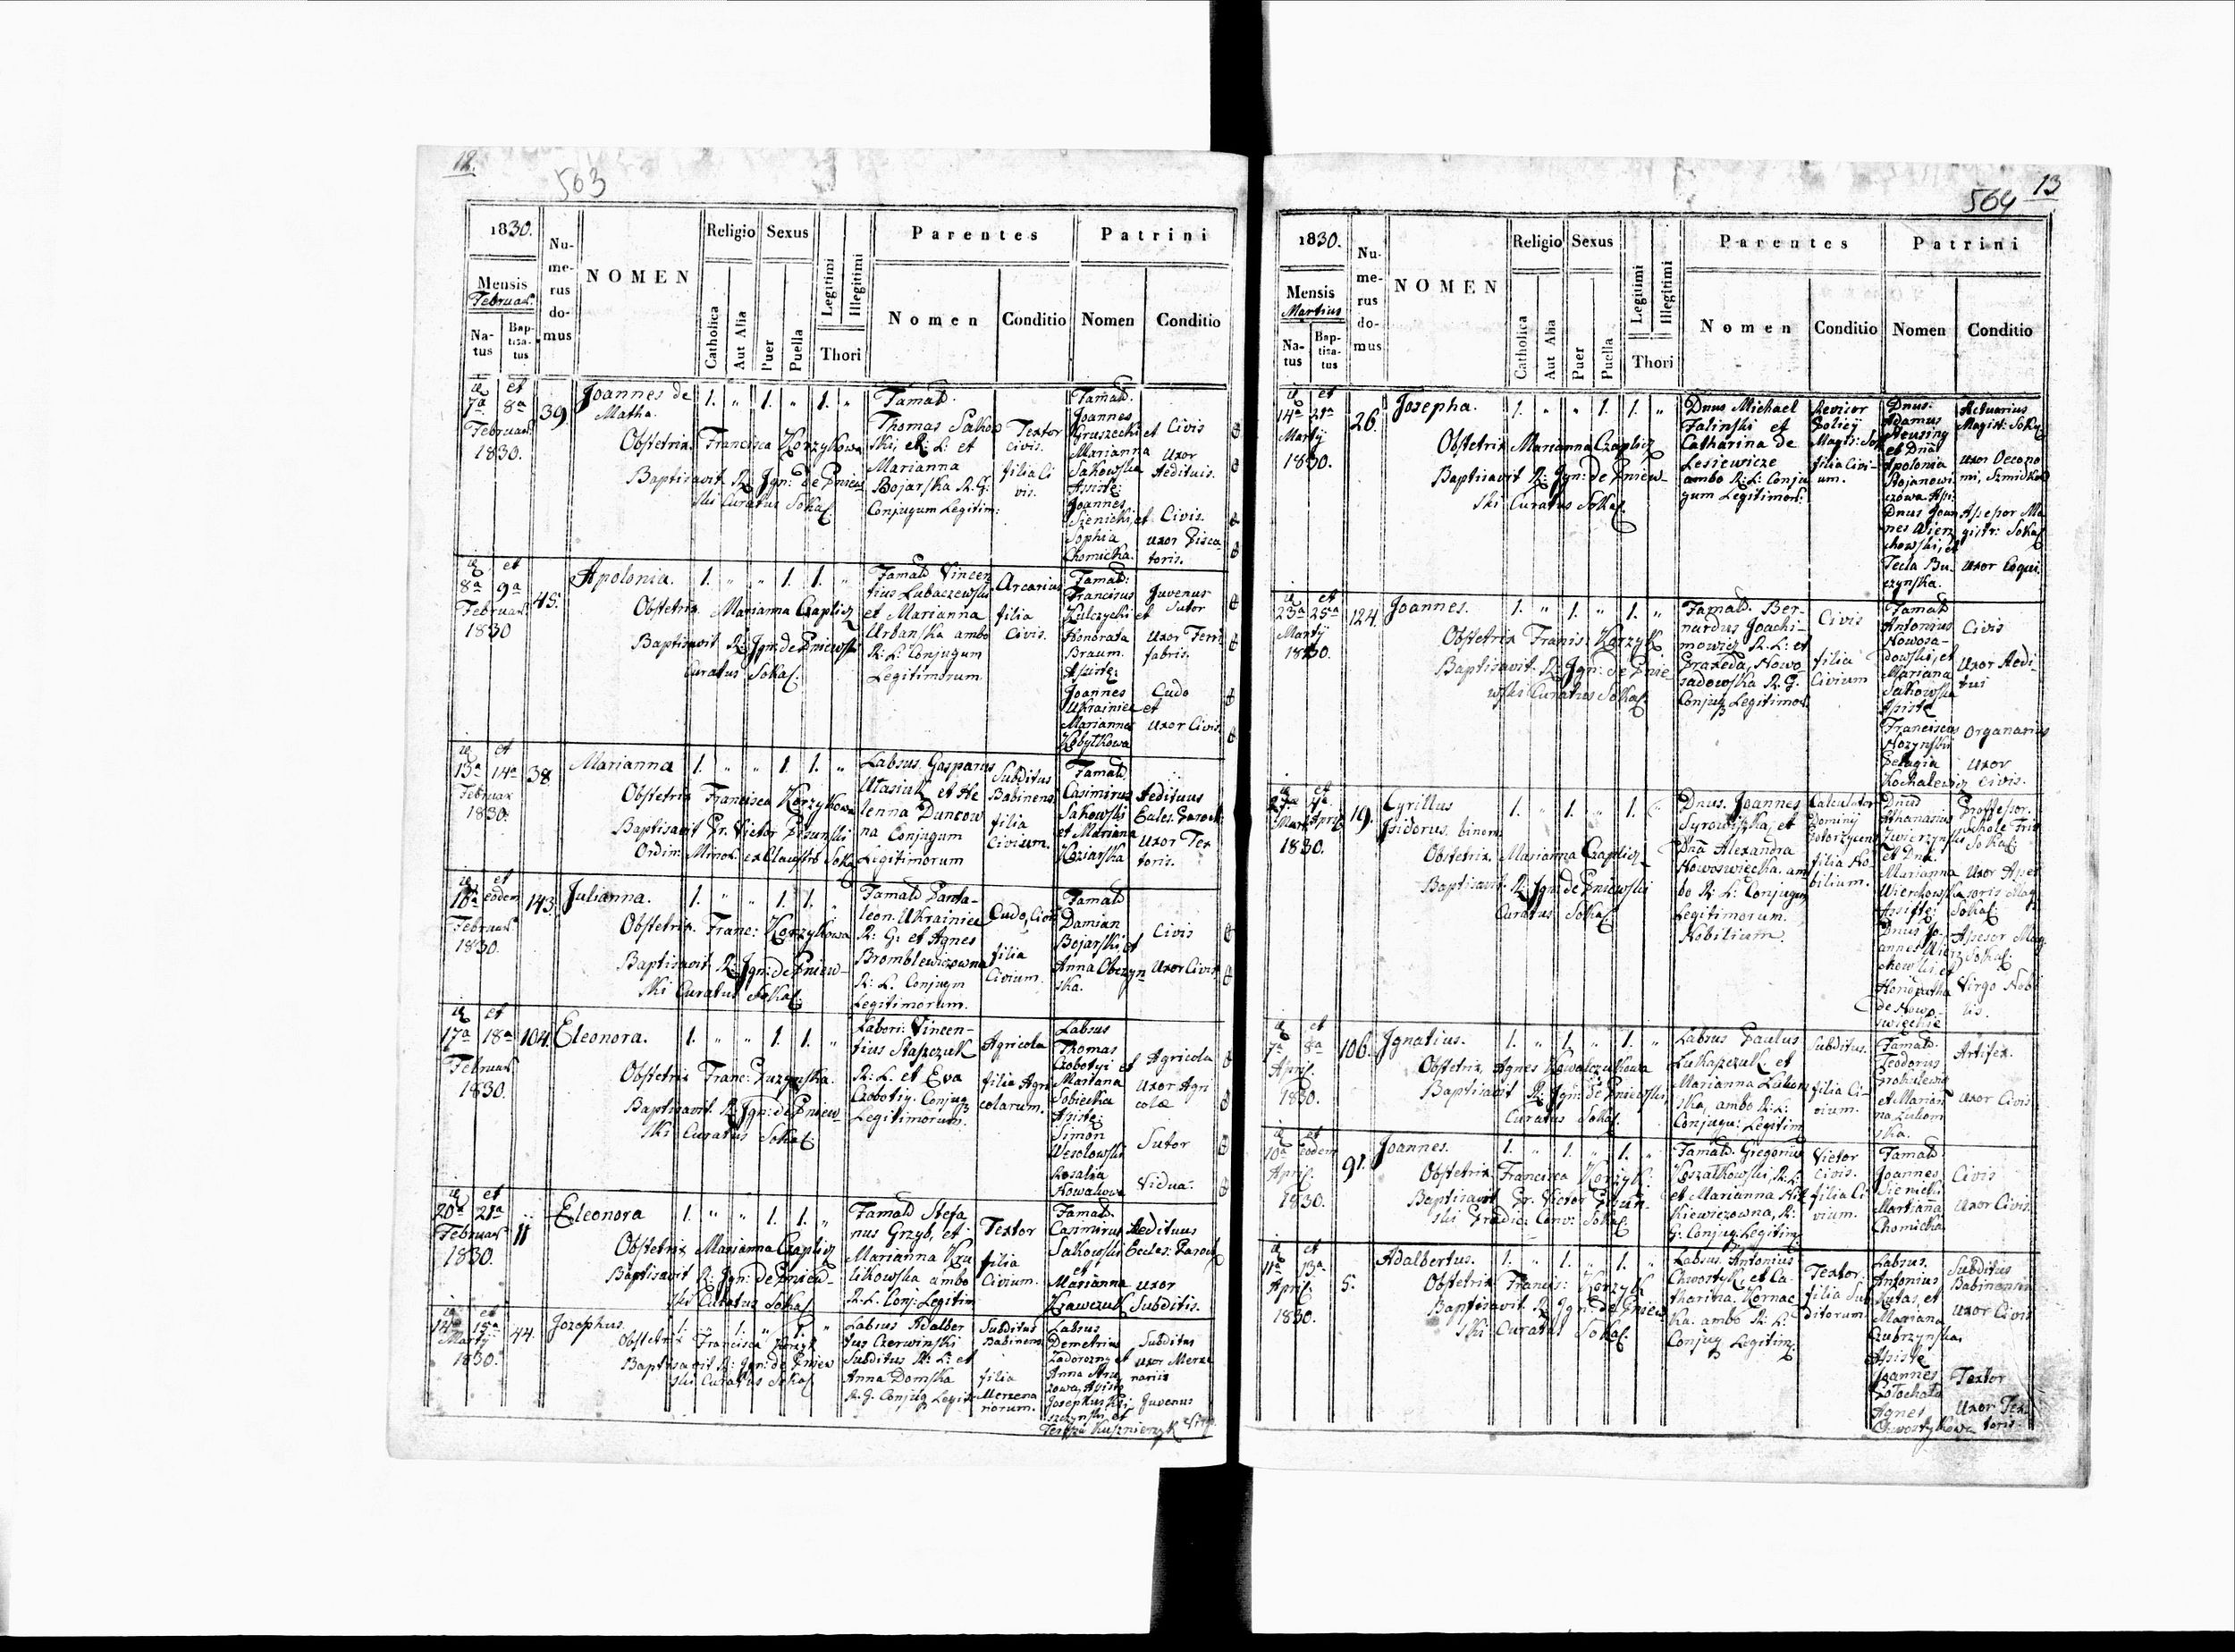 12.
503
1830.
Nu-
me-
rus
do-
mus
NOMEN
Religio
Sexus
Legitimi
Illegitimi
Parentes
Patrini
Mensis
Februar.
Na-
tus
Bap-
tisa-
tus
Catholica
Aut Alia
Puer
Puella
Thori
Nomen
Conditio
Nomen
Conditio
et
7a 8a
Februar.
1830.
39
Joannes de
Matha.
1. „ 1. „ 1. „
Obstetrix Francisca Korzykowa
Baptisavit R: Jgn: de Pniew
ski Curatus Sokal.
Famat.
Thomas Sakow
ski, R: L: et
Marianna
Bojarska R. G:
Conjugum Legitim:
Textor
civis.
filia Ci
vis.
Famat.
Joannes
Gruszecki et
Marianna
Sakowska
Assiste:
Joannes
Sienicki, et
Sophia
Chomicka.
Civis
Uxor
Aedituis.
Civis.
uxor Pisca
toris.
et
8a 9a
Februar.
1830
45.
Apolonia.
1. „ „ 1. 1. „
Obstetrix Marianna Czaplicz
Baptisavit R: Jgn: de Pniewski
Curatus Sokal.
Famat Vincen
tius Lubaczewski
et Marianna
Urbanska ambo
R: L: Conjugum
Legitimorum
Arcarius
filia
Civis.
Famat:
Franciscus
Kulczycki et
Honorata
Braum.
Assiste:
Joannes
Ukrainiec et
Marianna
Kobylkowa
Juvenus
Sutor
Uxor Ferri
fabris.
Cudo
Uxor Civis
et
13a 14a
Februar
1830.
38
Marianna
1. „ „ 1. 1. „
Obstetrix Francisca Korzykowa
Baptisavit Pr. Victor
Ordin: Minor. ex Claustro Sokal
Labsus. Gasparus
Ulasiuk et He
lenna Duncow
na Conjugum
Legitimorum
Subditus
Babinens.
filia
Civium.
Famat.
Casimirus
Sakowski
et Mariana
Koziarska
Aedituus
Eccles. Paroch
Uxor Tex
toris.
et
eodem
Februar.
1830.
143.
Julianna.
1. „ „ 1. 1. „
Obstetrix. Franc: Korzykowa
Baptisavit R: Jgn: de Pniew-
ski Curatus Sokal.
Famat Panta-
leon Ukrainiec
R: G: et Agnes
Bromblewiczowna
R: L: Conjugum
Legitimorum.
Cudo, Civis
filia
Civium.
Famat
Damian
Bojarski, et
Anna Obczyn
ska.
Civis
Uxor Civis
et
17a 18a
Februar.
1830.
104.
Eleonora.
1. „ „ 1. 1. „
Obstetrix Franc:
Baptisavit. R: Jgn: de Pniew-
ski Curatus Sokal.
Labori: Vincen-
tius Staszczuk
R: L. et Eva
Czobotiy. Conjug
Legitimorum.
Agricola
filia Agri
colarum.
Labsus
Thomas
Czobotyi et
Mariana
Sobiecka
Assiste:
Simon
Wesolowski
Rosalia
Nowakowa
Agricola
Uxor Agri
colæ
Sutor
Vidua.
et
20a 21a
Februar
1830.
11
Eleonora
1. „ „ 1. 1. „
Obstetrix Marianna Czaplicz
Baptisavit R: Jgn: de Pniew-
ski Curatus Sokal.
Famat Stefa
nus Grzyb, et
Marianna Kru
likowska ambo
R. L. Conj: Legitim
Textor
filia
Civium.
Famat.
Casimirus
Sakowski
et
Marianna
Krawczuk
Aedituus
Eccles: Paroch
uxor
Subditis.
et
14a 15a
Martÿ
1830.
44.
Josephus.
1. „ 1. „ 1. „
Obstetrix Francisca Korzyk
Baptisavit R: Jgn: de Pniew
ski Curatus Sokal
Labsus Adalber
tus Czerwinski
Subditus R: L: et
Anna Domska
R. G. Conjug Legit:
Subditus
Babinens
filia
Mercena
riorum.
Labsus
Demetrius
Zadorozny et
Anna
Assiste
Josephus
et
Subditus
uxor Merce
narii
Juvenus
13
564
1830.
Nu-
me-
rus
do-
mus
NOMEN
Religio
Sexus
Legitimi
Illegitimi
Parentes
Patrini
Mensis
Martius
Na-
tus
Bap-
tisa-
tus
Catholica
Aut Alia
Puer
Puella
Thori
Nomen
Conditio
Nomen
Conditio
et
14a 21a
Martÿ
1830.
26.
Josepha.
1. „ „ 1. 1. „
Obstetrix Marianna Czaplicz
Baptisavit R: Jgn: de Pniew-
ski Curatus Sokal.
Dnus Michael
Falinski et
Catharina de
Lesiewicze
ambo R: L: Conju
gum Legitimor:
Revisor
Policij
Magis: Sok
filia Civi-
um.
Dnus.
Adamus
Heusing
et Dna
Apolonia
Stojanowi
czowa. Assi:
Dnus Joan
nes Wierz
chowski, et
Tecla Bu-
czynska.
Actuarius
Magist: Sokal
uxor Oecono
mi,
Assessor Ma
gistr: Sokal
uxor Coqui.
et
23a 25a
Martÿ
1830.
124.
Joannes.
1. „ 1. „ 1. „
Obstetrix Francis: Korzyk.
Baptisavit. R: Jgn: de Pnie
wski Curatus Sokal.
Famat. Ber-
nardus Joachi-
mowicz R. L: et
Praxeda, Nowo
sadowska R. G.
Conjug Legitimor.
Civis
filia
Civium
Famat
Antonius
Nowosa-
dowski, et
Mariana
Sakowska
Assiste
Franciscus
Nozynski
Pelagia
Kochalewicz
Civis
Uxor Aedi-
tui
Organarius
Uxor
Civis.
et
Mart. April
1830.
19.
Cyrillus
Isidorus. binom.
1. „ 1. „ 1. „
Obstetrix. Marianna Czaplicz
Baptisavit. R: Jgn: de Pniewski
Curatus Sokal.
Dnus. Joannes
Syrowiszka, et
Dna Alexandra
Nowoswiecka. am
bo R: L: Conjugum
Legitimorum.
Nobilium.
Calculator
Dominÿ
Potorzycens
filia No-
bilium.
Dnus
Athanasius
Zwierzynski
et Dna.
Marianna
Wierchowska
Assiste:
Dnus Jo-
annes Wierz
chowski, et
Honoratha
de Nowo-
swieckie
Professor.
Schole Triv
Sokal.
Uxor Asses
soris Mag
Sokal.
Assesor Mag.
Sokal.
Virgo Nobi
lis.
et
7a 8a
April.
1830.
106.
Jgnatius.
1. „ 1. „ 1. „
Obstetrix Agnes Kowalczukowa
Baptisavit R: Jgn: de Pniewski,
Curatus Sokal.
Labsus Paulus
Lukaszczuk et
Marianna Lukom
ska, ambo R: L:
Conjugu: Legitim
Subditus.
filia Ci-
vium.
Famat.
Teodorus
Prokulewicz
et Marian
na Lukom
ska.
Artifex.
uxor Civis
et
10a Eodem
April.
1830.
91.
Joannes.
1. „ 1. „ 1. „
Obstetrix Francisca Korzyk.
Baptisavit Pr. Victor
Conv: Sokal.
Famat. Gregorius
Koszalkowski, R. L.
et Marianna Nik
kiewiczowna, R:
G: Conjug: Legitim:
Vietor
Civis.
filia Ci-
vium.
Famat
Joannes
Sienicki
Martiana
Chomicka
Civis
Uxor Civis.
et
11a 13a
April.
1830.
5.
Adalbertus.
1. „ 1. „ 1. „
Obstetrix Francis: Korzyk
Baptisavit. R: Jgn: de Pniew
ski Curatus Sokal.
Labsus. Antonius
Chwostyk, et Ca-
tharina. Kornac
ka. ambo R: L:
Conjug Legitim.
Textor.
filia Sub
ditorum
Labsus.
Antonius
Kutas, et
Mariana
Assiste
Joannes
Agnes
Chwostykowa
Subditus
Babinensis
uxor Civis
Textor
Uxor Tex
toris.